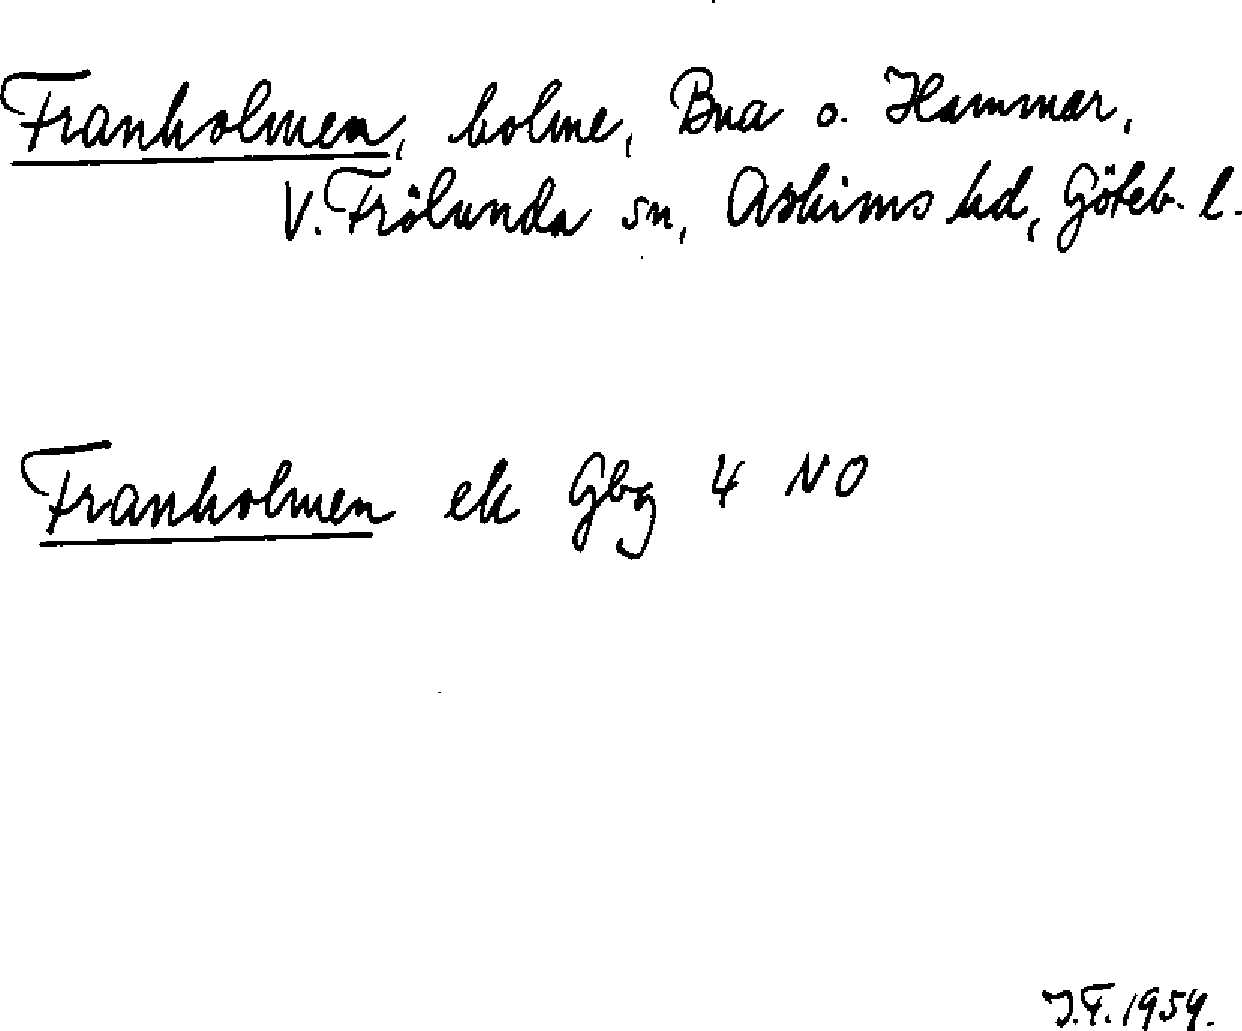 Franholmen, holme, Bua o. Hammar,
V. Frölunda sn, Askims hd, Göteb. l.
Franholmen ek Gbg 4 NO
J.F. 1954.